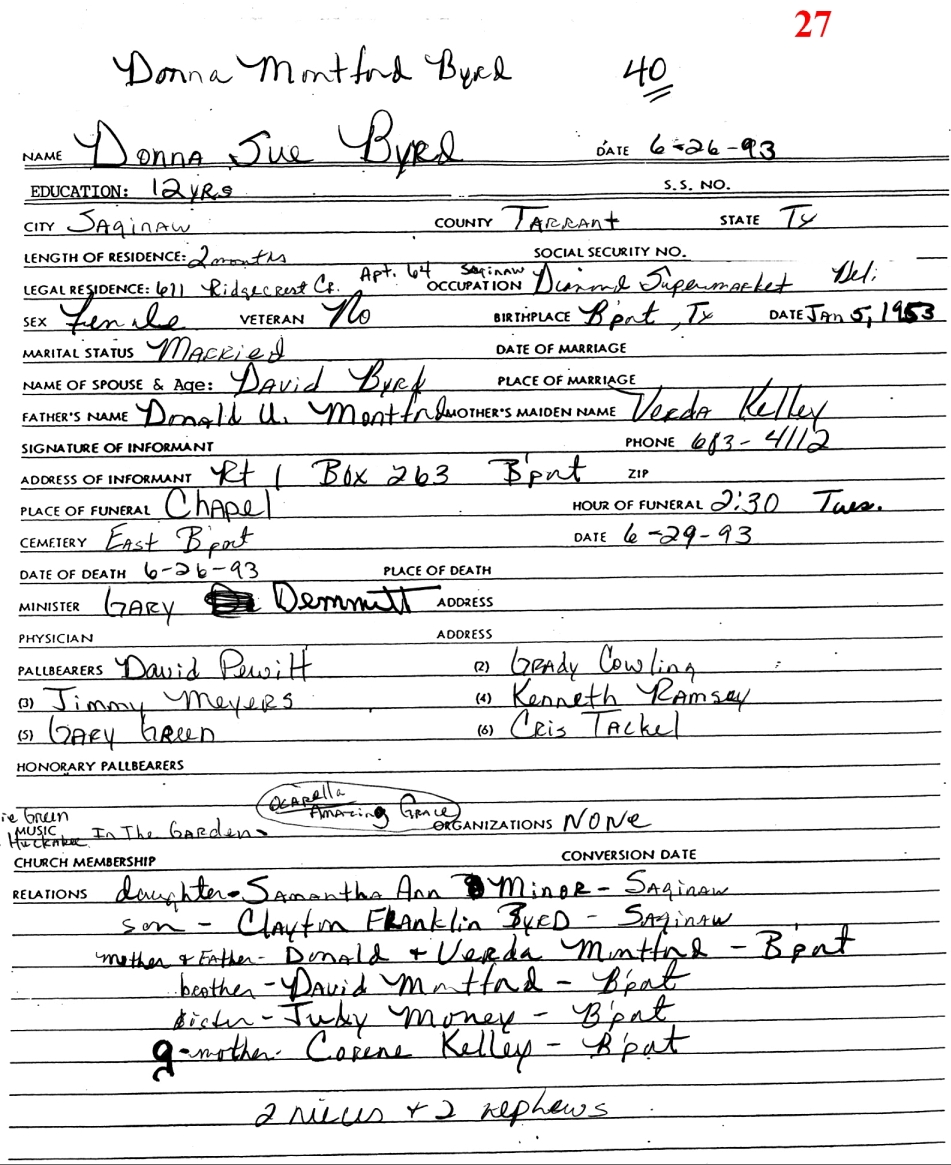 27
Donna Montford Byrd 40
NAME Donna Sue Byrd DATE 6-26-93
EDUCATION: 12 yrs S.S. NO.
CITY Saginaw COUNTY Tarrant STATE Tx
LENGTH OF RESIDENCE: 2 months SOCIAL SECURITY NO.
LEGAL RESIDENCE: 611 Ridgecrest Cr. Apt. 64 Saginaw OCCUPATION Diamond Supermarket Deli
SEX Female VETERAN No BIRTHPLACE B'port, Tx DATE Jan 5, 1953
MARITAL STATUS Married DATE OF MARRIAGE
NAME OF SPOUSE & Age: David Byrd PLACE OF MARRIAGE
FATHER'S NAME Donald U. Montford MOTHER'S MAIDEN NAME Verda Kelley
SIGNATURE OF INFORMANT PHONE 683-4112
ADDRESS OF INFORMANT Rt 1 Box 263 B'port ZIP
PLACE OF FUNERAL Chapel HOUR OF FUNERAL 2:30 Tues.
CEMETERY East B'port DATE 6-29-93
DATE OF DEATH 6-26-93 PLACE OF DEATH
MINISTER Gary Demmitt ADDRESS
PHYSICIAN ADDRESS
PALLBEARERS David Pewitt (2) Grady Cowling
(3) Jimmy Meyers (4) Kenneth Ramsey
(5) Gary Green (6) Cris Tackel
HONORARY PALLBEARERS
ocapella
ie Green Amazing Grace
MUSIC In The Garden ORGANIZATIONS None
Huckabee
CHURCH MEMBERSHIP CONVERSION DATE
RELATIONS daughter - Samantha Ann Minor - Saginaw
son - Clayton Franklin Byrd - Saginaw
mother & Father - Donald & Verda Montford - B'port
brother - David Montford - B'port
sister - Judy Money - B'port
g-mother - Corene Kelley - B'port
2 nieces + 2 nephews